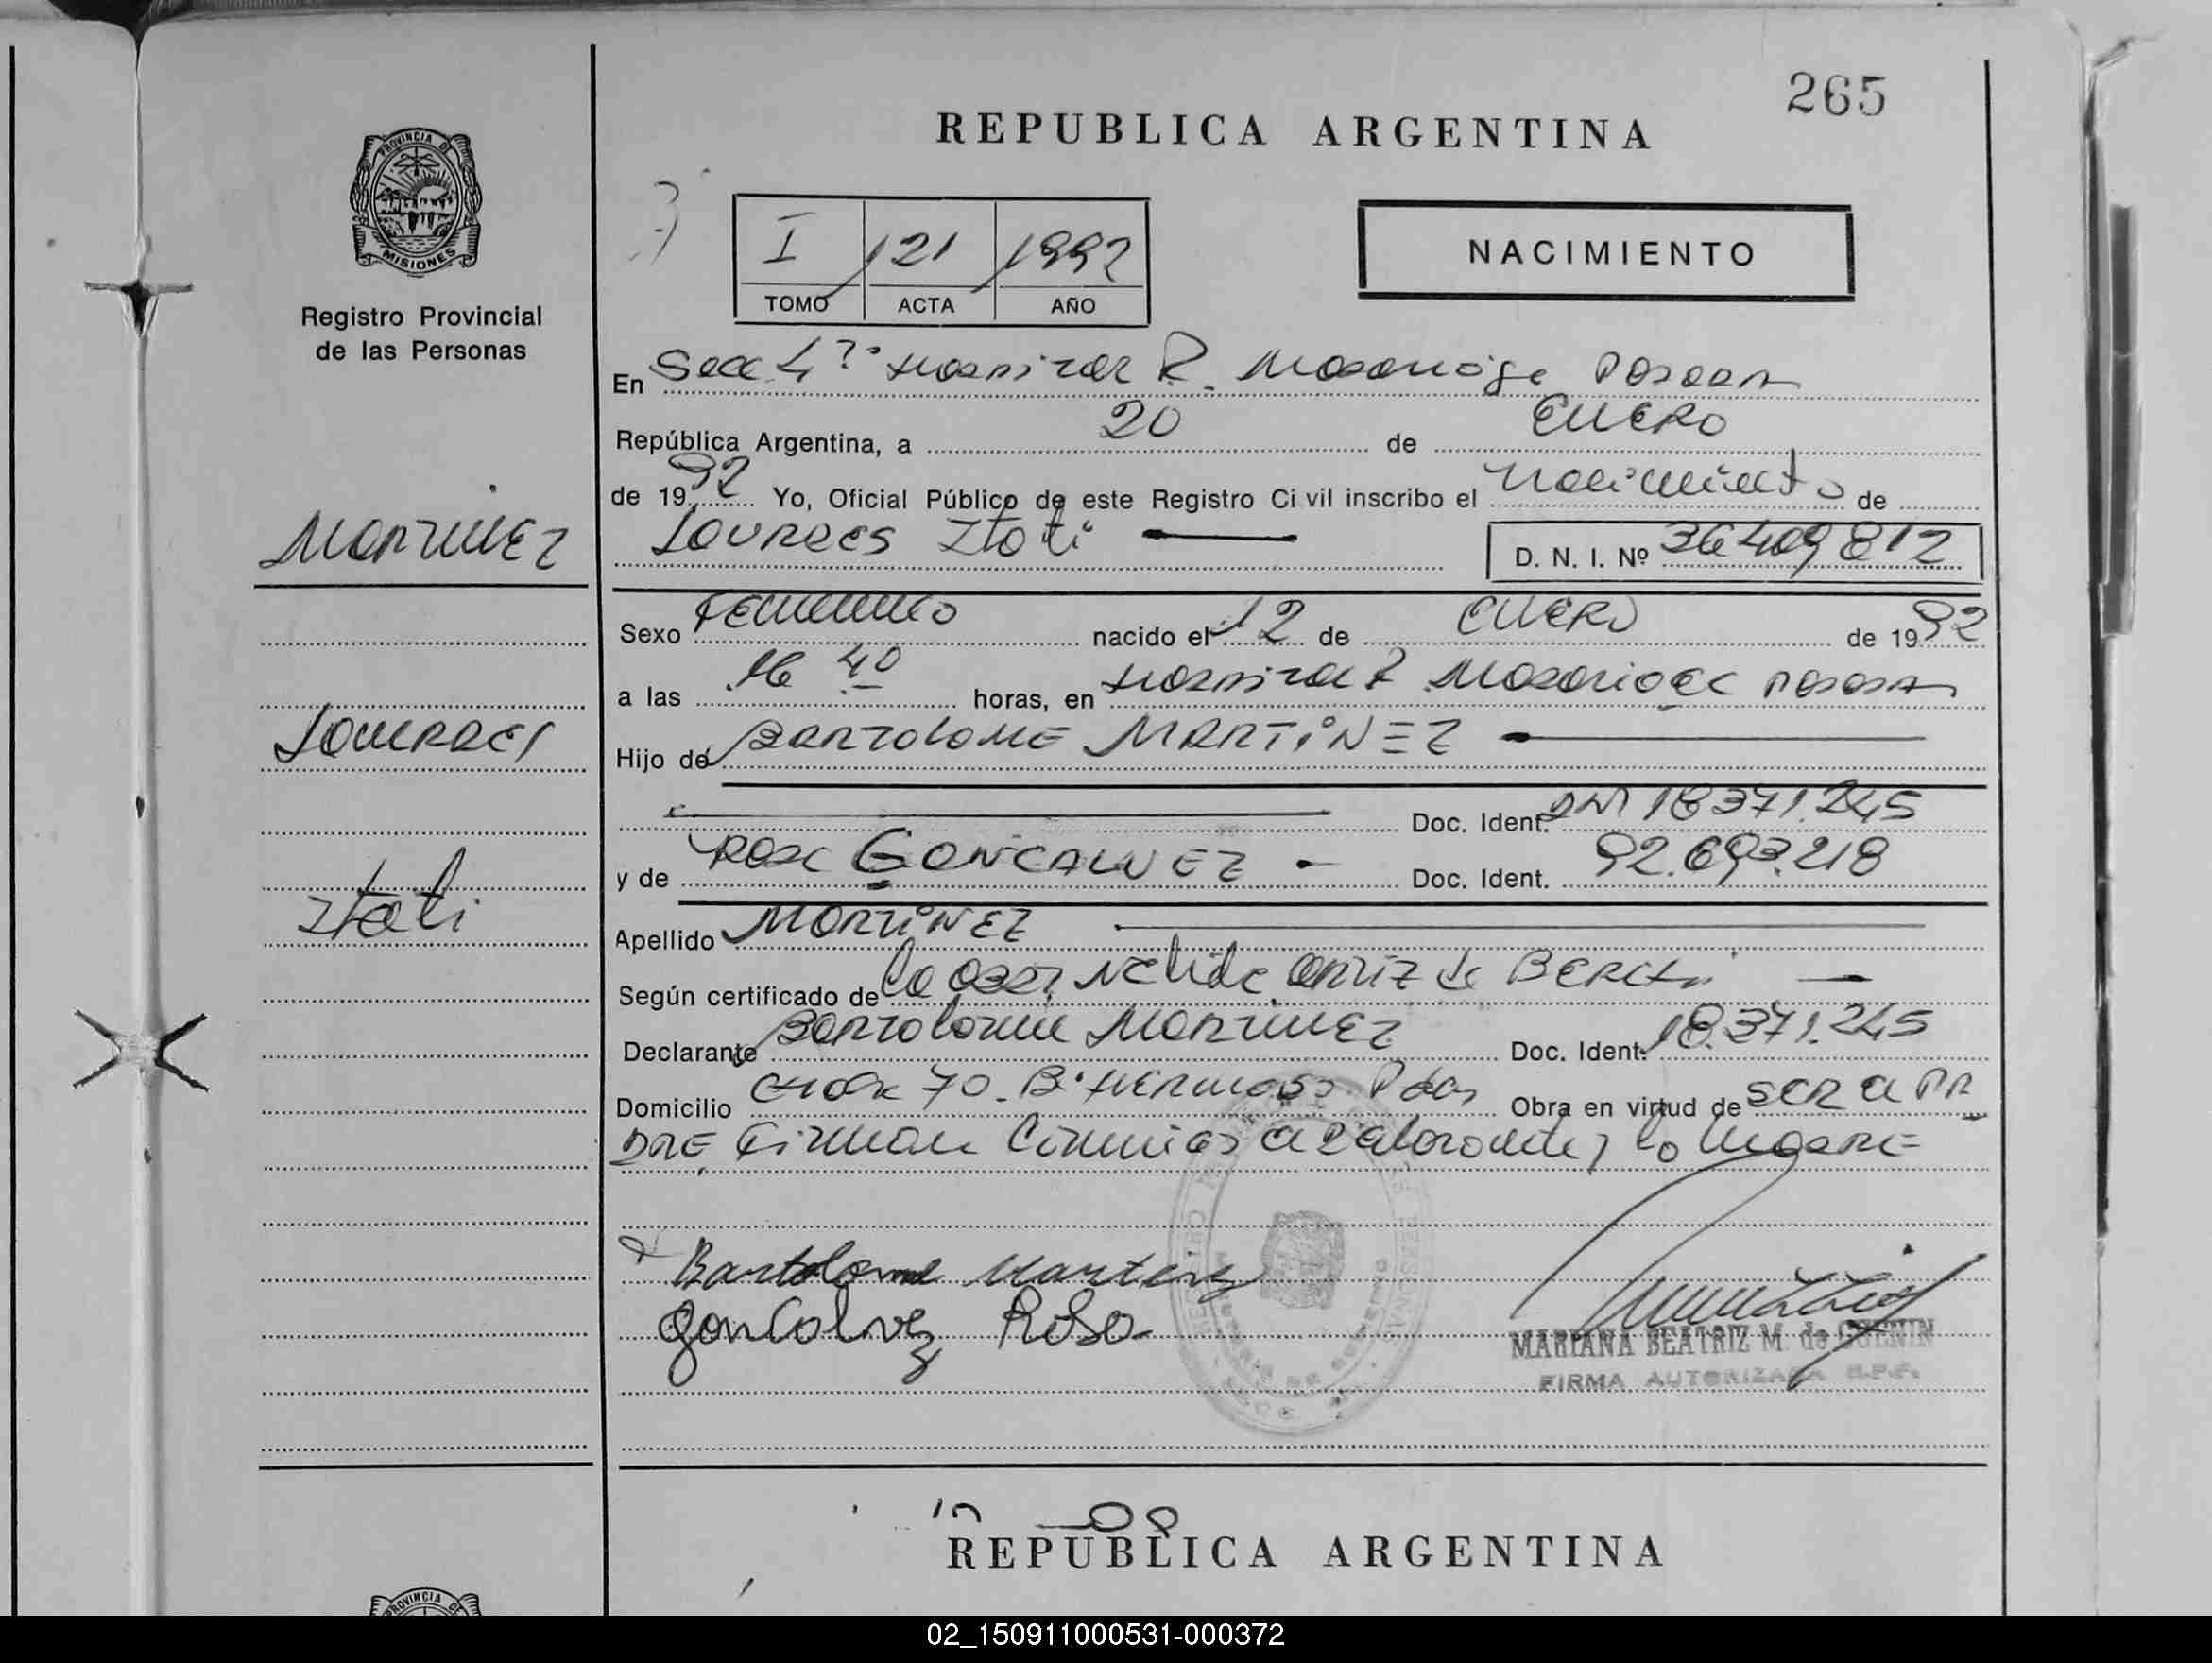 265
REPUBLICA ARGENTINA
PROVINCIA DE
MISIONES
Registro Provincial
de las Personas
I 121 1992
TOMO ACTA AÑO
NACIMIENTO
En Secc 4ª Hospital R. Madariaga Posadas
República Argentina, a 20 de ENERO
de 1992 Yo, Oficial Público de este Registro Civil inscribo el nacimiento de
LOURDES Itati
D. N. I. Nº 36409812
MARTINEZ
LOURDES
Itati
Sexo FEMENINO nacido el 12 de ENERO de 1992
a las 16 40 horas, en Hospital R Madariaga Posadas
Hijo de BARTOLOME MARTINEZ
Doc. Ident. DNI 18371.245
y de ROSA GONCALVEZ Doc. Ident. 92.693.218
Apellido MARTINEZ
Según certificado de la Nelida de
Declarante Bartolome MARTINEZ Doc. Ident. 18.371.245
Domicilio 70. Bº HERMOSO Pdas Obra en virtud de SER el PA
DRE, Firman
Bartolome Martinez
Goncalvez Rosa
MARIANA BEATRIZ M. de GUENIN
FIRMA AUTORIZADA R.P.P.
REPUBLICA ARGENTINA
PROVINCIA DE
02_150911000531-000372